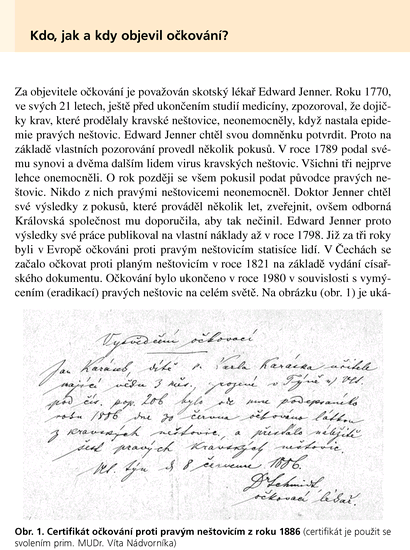 Kdo, jak a kdy objevil očkování?
Za objevitele očkování je považován skotský lékař Edward Jenner. Roku 1770,
ve svých 21 letech, ještě před ukončením studií medicíny, zpozoroval, že dojič-
ky krav, které prodělaly kravské neštovice, neonemocněly, když nastala epide-
mie pravých neštovic. Edward Jenner chtěl svou domněnku potvrdit. Proto na
základě vlastních pozorování provedl několik pokusů. V roce 1789 podal své-
mu synovi a dvěma dalším lidem virus kravských neštovic. Všichni tři nejprve
lehce onemocněli. O rok později se všem pokusil podat původce pravých ne-
štovic. Nikdo z nich pravými neštovicemi neonemocněl. Doktor Jenner chtěl
své výsledky z pokusů, které prováděl několik let, zveřejnit, ovšem odborná
Královská společnost mu doporučila, aby tak nečinil. Edward Jenner proto
výsledky své práce publikoval na vlastní náklady až v roce 1798. Již za tři roky
byli v Evropě očkováni proti pravým neštovicím statisíce lidí. V Čechách se
začalo očkovat proti planým neštovicím v roce 1821 na základě vydání císař-
ského dokumentu. Očkování bylo ukončeno v roce 1980 v souvislosti s vymý-
cením (eradikací) pravých neštovic na celém světě. Na obrázku (obr. 1) je uká-
Vysvědčení očkovací
Jan Karásek, dítě p. Karla Karáska učitele
mající věku 3 měs., rozené v Týně n/Vlt.
pod čís. pop. 206 bylo ode mne podepsaného
roku 1886 dne 30 června očkováno látkou
z kravských neštovic, a přestálo náležitě
šest pravých kravských neštovic.
Vlt. Týn d. 8 července 1886.
Dr Schmidt
očkovací lékař.
Obr. 1. Certifikát očkování proti pravým neštovicím z roku 1886 (certifikát je použit se
svolením prim. MUDr. Víta Nádvorníka)